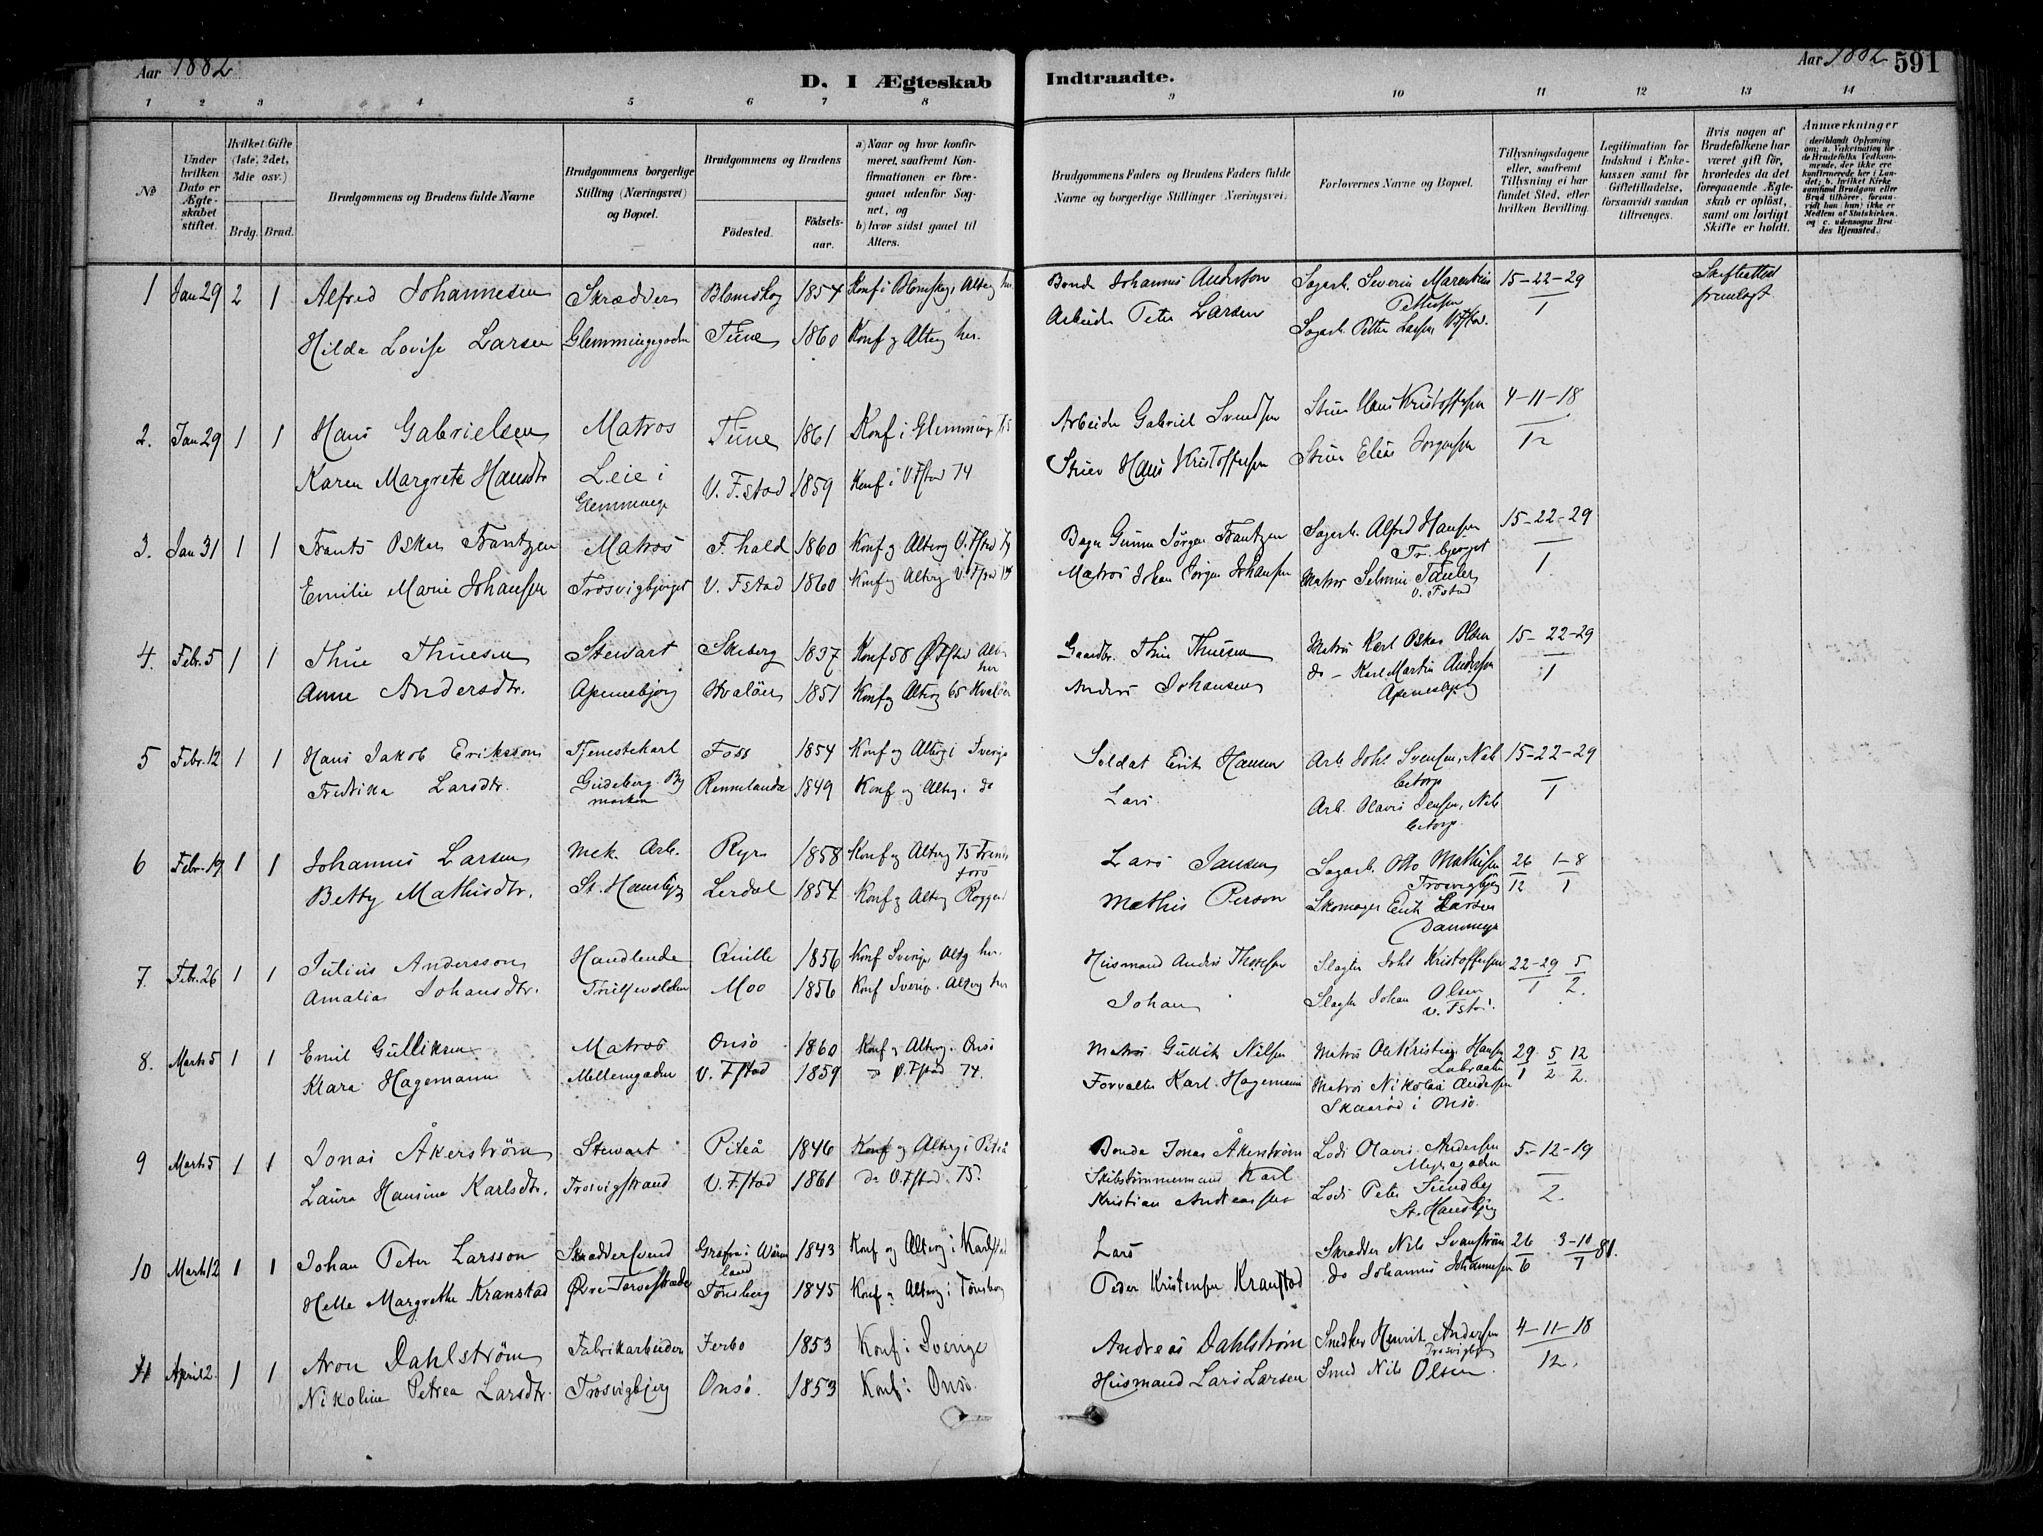 Aar 1882
D. I Ægteskab Indtraadte.
Aar 1882 591
1 2 3 4 5 6 7 8 9 10 11 12 13 14
No
Under hvilken Dato er Ægteskabet stiftet.
Hvilket Gifte (1ste, 2det, 3die osv.)
Brdg. Brud.
Brudgommens og Brudens fulde Navne
Brudgommens borgerlige Stilling (Næringsvei) og Bopæl.
Brudgommens og Brudens
Födested.
Födsels-aar.
a) Naar og hvor konfirmeret, saafremt Konfirmationen er foregaaet udenfor Sognet, og
b) hvor sidst gaaet til Alters.
Brudgommens Faders og Brudens Faders fulde Navne og borgerlige Stillinger (Næringsvei.
Forlovernes Navne og Bopæl.
Tillysningsdagene eller, saafremt Tillysning ei har fundet Sted, efter hvilken Bevilling.
Legitimation for Indskud i Enkekassen samt for Giftetilladelse, forsaavidt saadan tiltrænges.
Hvis nogen af Brudefolkene har været gift för, hvorledes da det foregaaende Ægteskab er oplöst, samt om lovligt Skifte er holdt.
Anmærkninger
(deriblandt Oplysning om: a. Vakcination for de Brudefolks Vedkommende, der ikke ere konfirmerede her i Landet; b. hvilket Kirkesamfund Brudgom eller Brud tilhörer, forsaavidt han (hun) ikke er Medlem af Statskirken, og c. udensogns Brudes Hjemsted.)
1 Jan 29 2 1 Alfred Johannesen Skrædder Blomskog 1854 Konf i Blomskog, Alterg her. Bonde Johannes Andersson Sagarb. Severin Marentius Pettersen 15-22-29 Skifteattest fremlagt
Hilda Lovise Larsen Glemmingegaden Tune 1860 Konf og Alterg her. Arbeider Peter Larsen Sagarb. Petter Larsen V. Fstad. 1
2. Jan 29 1 1 Hans Gabrielsen Matros Tune 1861 Konf i Glemminge 75 Arbeider Gabriel Svendsen Stuer Hans Kristoffersen 4-11-18
Karen Margrete Hansdtr Leie i Glemminge V. F.stad 1859 Konf i V. Fstad 74 Stuer Hans Kristoffersen Stuer Elias Jørgensen 12
3. Jan 31 1 1 Frants Oskar Frantzen Matros F.hald 1860 Konf og Alterg V. Fstad Bager Gunnar Jørgen Frantzen Sagarb. Alfred Hansen Tr.bjerget 15-22-29
Emilie Marie Johansen Trosvigbjerget V. Fstad 1860 Konf og Alterg V. Fstad Matros Johan Jørgen Johansen Matros Selmin V. Fstad 1
4. Febr. 5 1 1 Thue Thuesen Stewart Skeberg 1837 Konf 58 Ø. Fsted Alt. her Gaardbr. Thue Thuesen Matros Karl Oskar Olsen 15-22-29
Anne Andersdtr. Apenesbjerg Hvaløer 1851 Konf og Alterg 65 Hvaløer Anders Johansen do - Karl Martin Andersen Apenesbjerg 1
5 Febr. 12 1 1 Hans Jakob Eriksson Tjenestekarl Foss 1854 Konf og Alterg i Sverige Soldat Erik Hanson Arb. Johs Svensen, Nabbetorp 15-22-29
Fredrika Larsdtr. Gudeberg Bymarken Rennelanda 1849 Konf og Alterg i do Lars Arb. Olavis Jensen, Nabbetorp. 1
6 Febr. 19 1 1 Johannes Larsen Mek. Arb. Ryr 1858 Konf og Alterg 75 Lars Jansen Sagarb. Otto Mathisen Trosvigbjerg 26/12 1-8/1
Betty Mathisdtr. St. Hansbjerg Lerdal 1854 Konf og Alterg Mathis Person Skomager Erik Larsen Dammyr
7. Febr. 26 1 1 Julius Andersson Handlende Quille 1856 Konf Sverige Alterg her. Husmand Anders Thoresen Slagter Johs Kristoffersen 22-29/1 5/2
Amalia Johansdtr. Moo 1856 Konf Sverige. Alterg her Johan Slagter Johan Olsen V. Fstad
8. Marts 5 1 1 Emil Gulliksen Matros Onsø 1860 Konf og Alterg i Onsø Matros Gullik Nilsen Matros Ole Kristian Hansen Labraaten 29/1 5/2 12/2
Klara Hagemann Mellemgaden V. Fstad 1859 Ø. Fstad 74. Forvalter Karl Hagemann Matros Nikolai Andersen Skaarød i Onsø.
9 Marts 5 1 1 Jonas Åkerström Stewart Piteå 1846 Konf og Alterg i Piteå Bonde Jonas Åkerström Lods Olavis Andersen Myragaden 5-12-19
Laura Hansine Karlsdtr. Trosvigstrand V. Fstad 1861 do V. Fstad. 75. Skibstømmermand Karl Kristian Andreassen Lods Peter Sundby St. Hansbjerg 2.
10 Marts 12 1 1 Johan Peter Larsson Skræddersvend Grafva i Wärmland 1843 Konf og Alterg i Karlstad Lars Skrædder Nils Svanström 26/6 3-10/7 81.
Helle Margrethe Kranstad Øvre Torvestræde Tønsberg 1845 Konf og Alterg i Tønsberg Peder Kristensen Kranstad do Johannes Johannesen
11 April 2. 1 1 Aron Dahlström Fabrikarbeider Jerbo 1853 Konf i Sverige Andreas Dahlström Snedker Henrik Andersen Trosvigberg 4-11-18
Nikoline Petrea Larsdtr. Trosvigbjerg Onsø. 1853 Konf i Onsø. Husmand Lars Larsen Smed Nils Olsen 12.